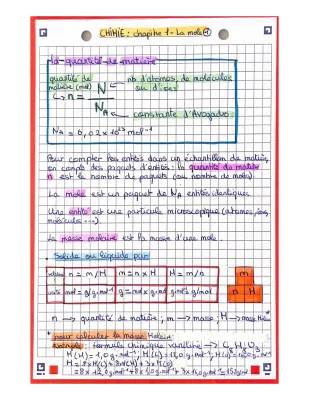 CHIMIE : chapitre 1 - La mole
La quantité de matière
quantité de matière (mol)
nb d'atomes, de molécules ou d'ions
n = N / NA
constante d'Avogadro
NA = 6,02 x 10²³ mol⁻¹
Pour compter les entités dans un échantillon de matière,
on compte des paquets d'entités : la quantité de matière
n est le nombre de paquets (ou nombre de moles)
La mole est un paquet de NA entités identiques
Une entité est une particule microscopique (atomes, ions,
molécules ...)
La masse molaire est la masse d'une mole.
Solide ou liquide pur
n = m/M m = n x M M = m/n
mol = g/g.mol⁻¹
m
n M
n → quantité de matière ; m → masse ; M → masse
pour calculer la masse
exemple : formule chimique vanilline → C₈H₈O₃